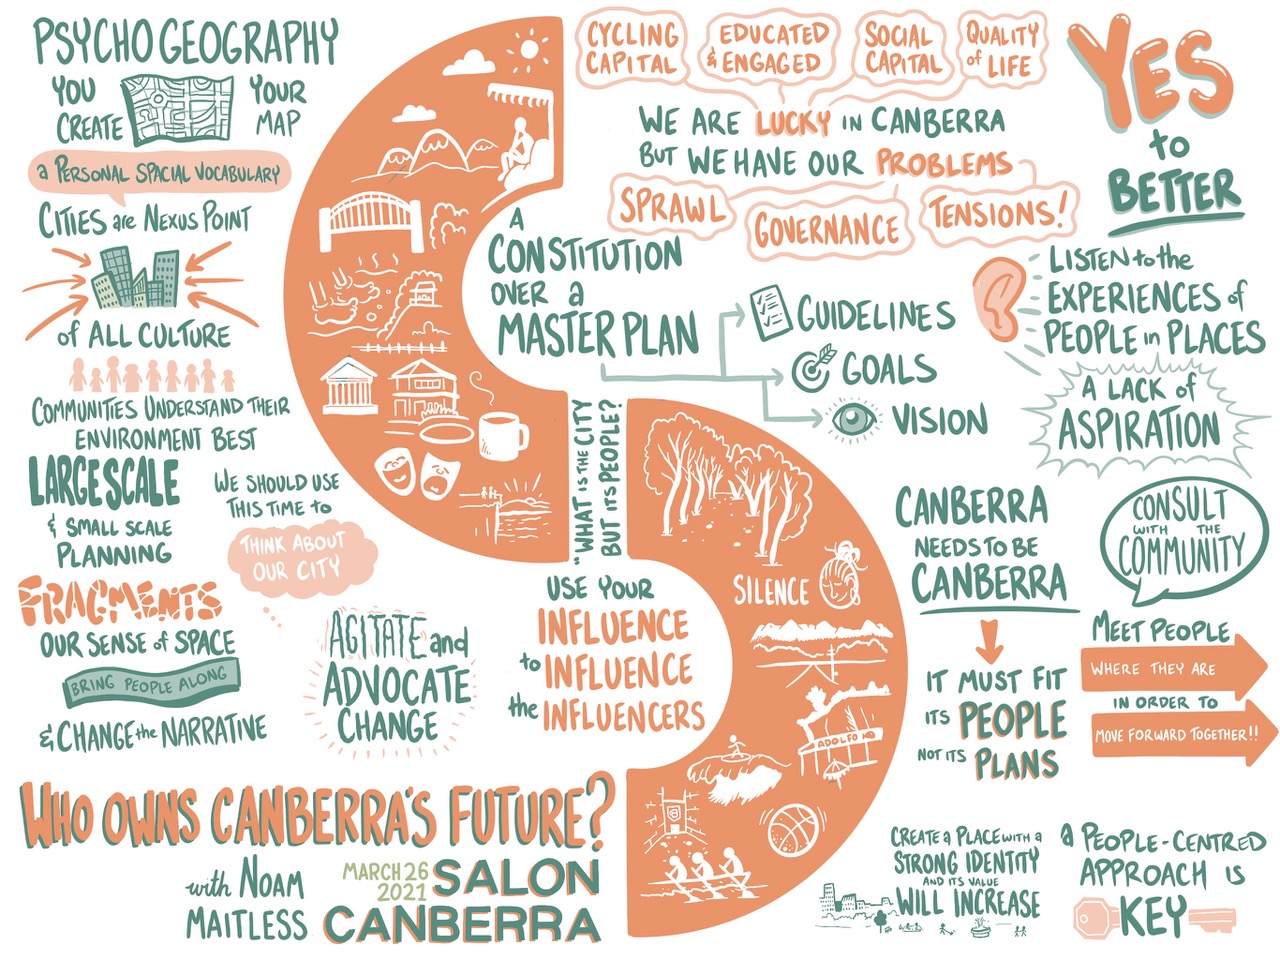 PSYCHOGEOGRAPHY
YOU CREATE
YOUR MAP
a PERSONAL SPACIAL VOCABULARY
CITIES are NEXUS POINT
of ALL CULTURE
COMMUNITIES UNDERSTAND THEIR
ENVIRONMENT BEST
LARGE SCALE
& SMALL SCALE
PLANNING
WE SHOULD USE
THIS TIME to
THINK ABOUT
OUR CITY
FRAGMENTS
OUR SENSE of SPACE
BRING PEOPLE ALONG
& CHANGE the NARRATIVE
AGITATE and
ADVOCATE
CHANGE
WHO OWNS CANBERRA'S FUTURE?
with NOAM
MAITLESS
MARCH 26
2021
SALON
CANBERRA
CYCLING
CAPITAL
EDUCATED
& ENGAGED
SOCIAL
CAPITAL
QUALITY
of LIFE
WE ARE LUCKY IN CANBERRA
BUT WE HAVE OUR PROBLEMS
SPRAWL
GOVERNANCE
TENSIONS!
A
CONSTITUTION
OVER a
MASTER PLAN
GUIDELINES
GOALS
VISION
"WHAT IS THE CITY
BUT ITS PEOPLE?"
USE YOUR
INFLUENCE
to INFLUENCE
the INFLUENCERS
SILENCE
ADOLFO
YES
to
BETTER
LISTEN to the
EXPERIENCES of
PEOPLE in PLACES
A LACK of
ASPIRATION
CANBERRA
NEEDS TO BE
CANBERRA
IT MUST FIT
ITS PEOPLE
NOT ITS PLANS
CONSULT
WITH THE
COMMUNITY
MEET PEOPLE
WHERE THEY ARE
IN ORDER TO
MOVE FORWARD TOGETHER!!
CREATE a PLACE WITH a
STRONG IDENTITY
AND ITS VALUE
WILL INCREASE
a PEOPLE-CENTRED
APPROACH IS
KEY